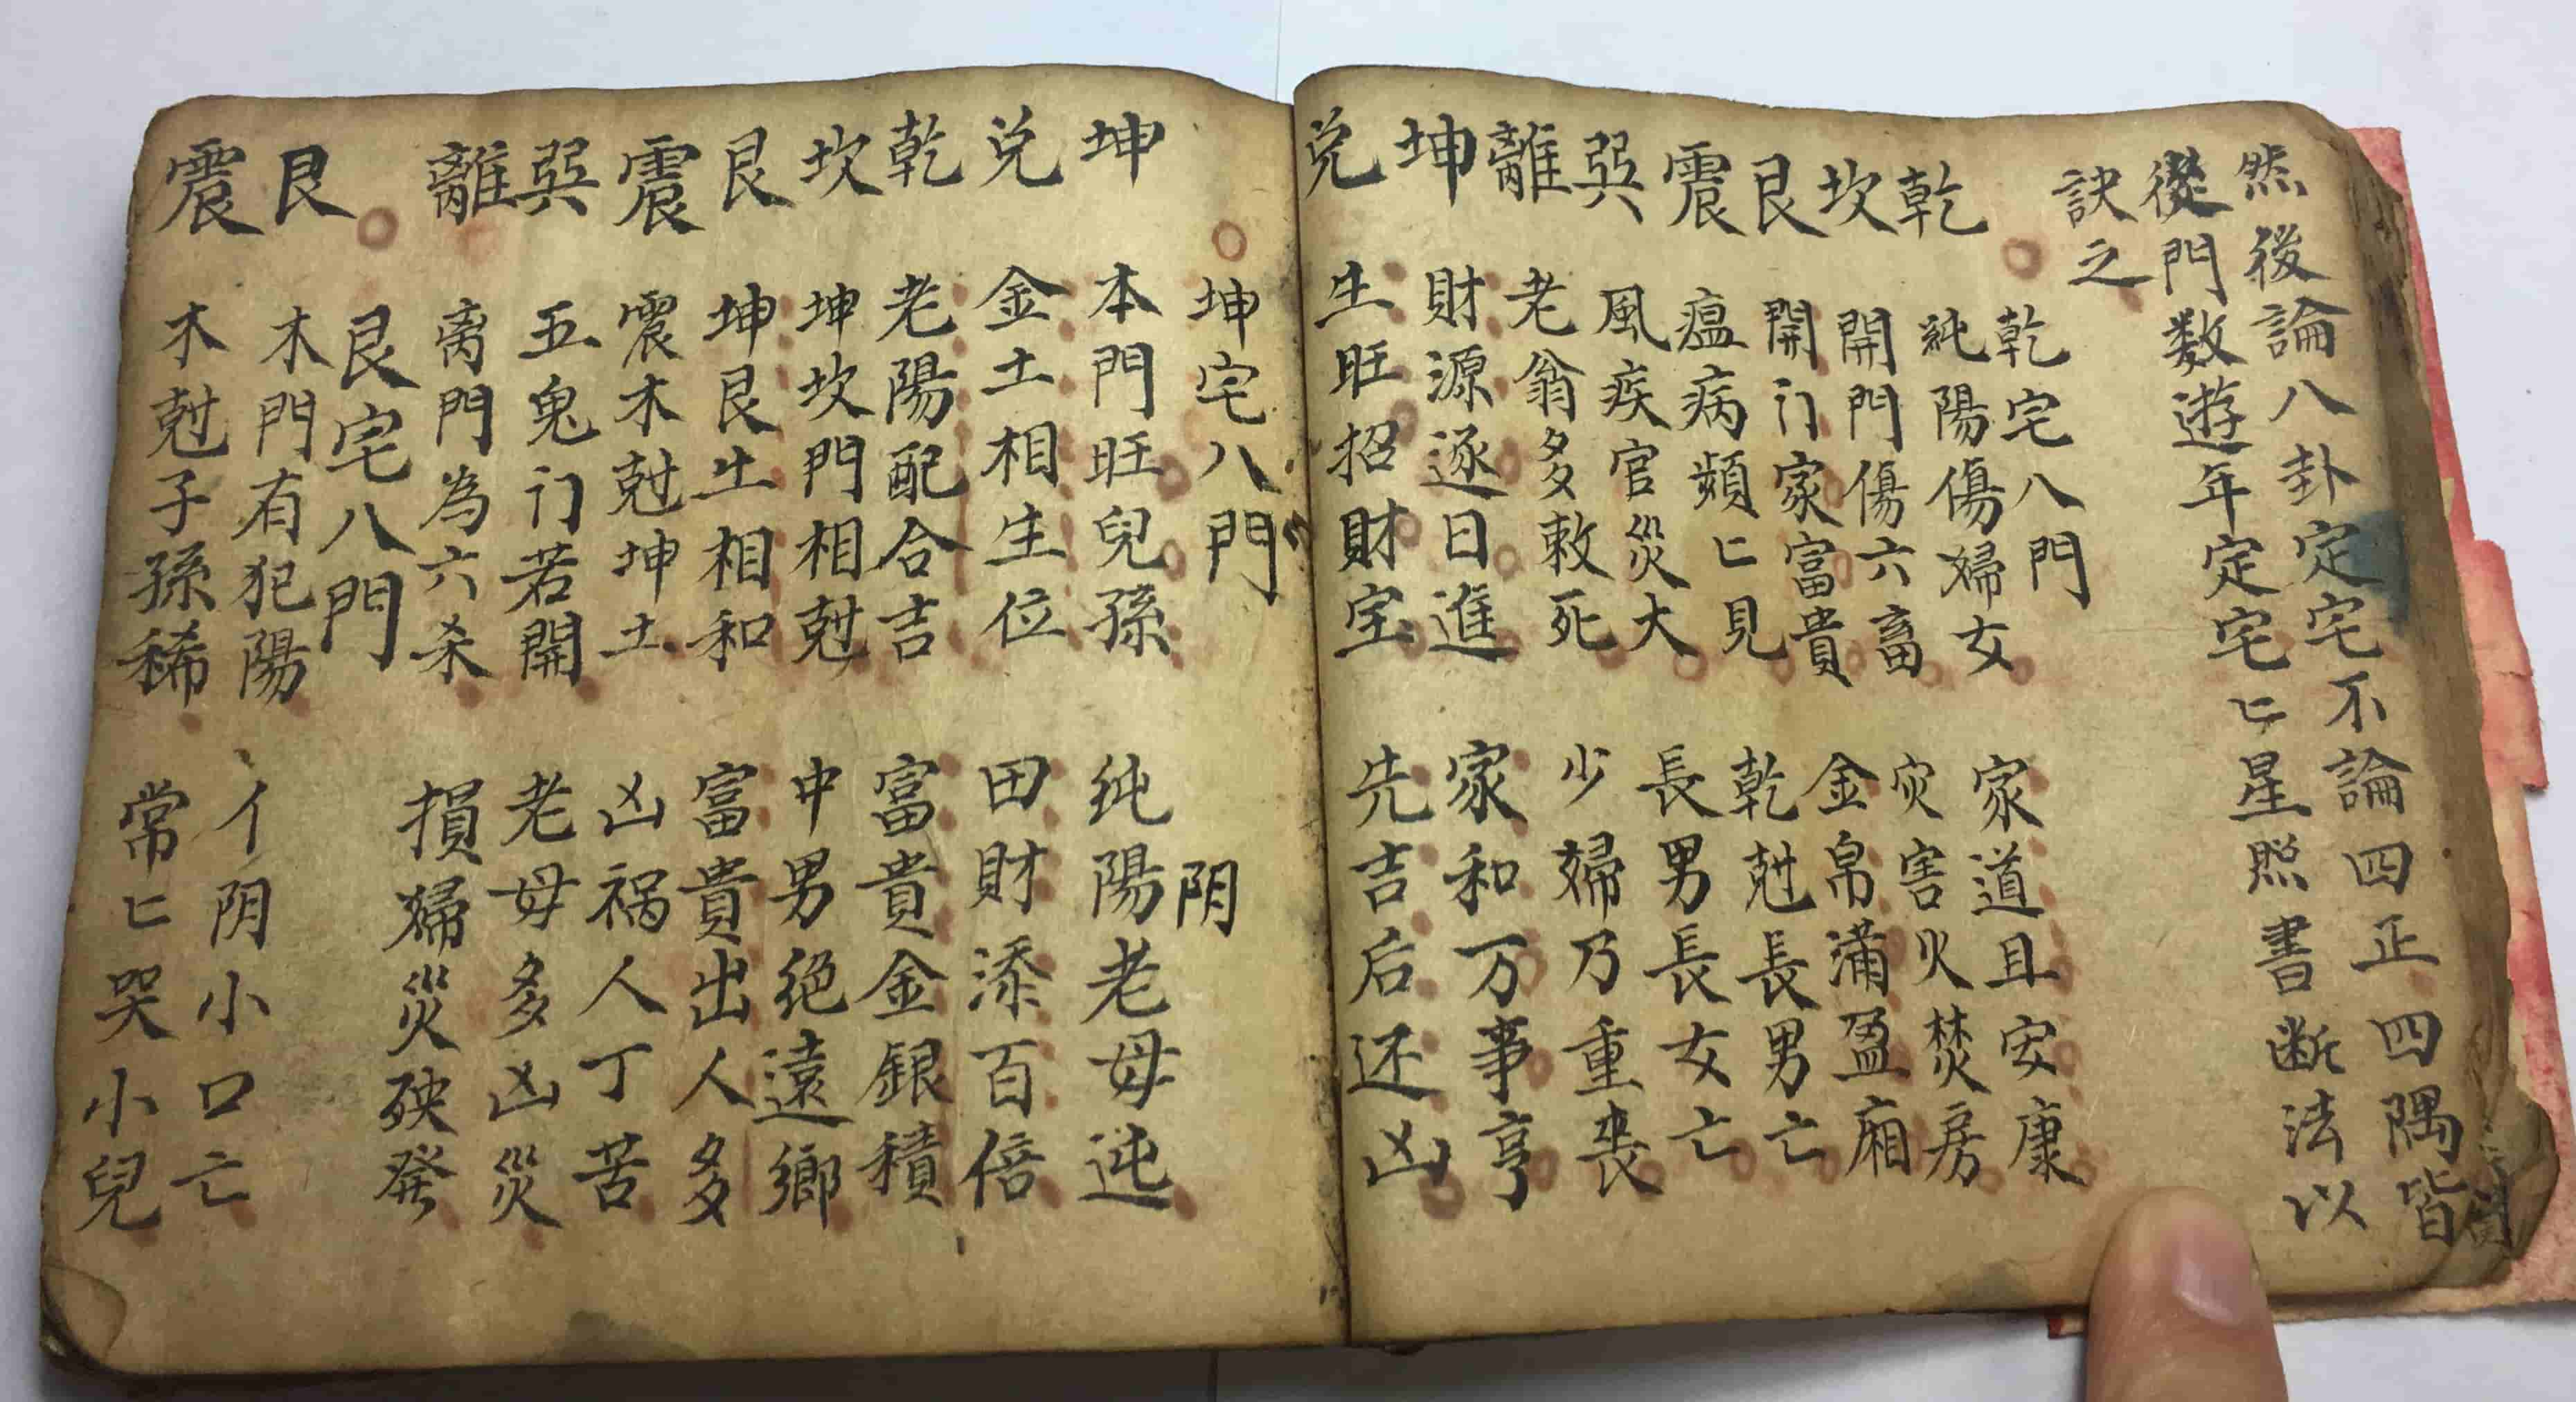 然後論八卦定宅不論四正四隅皆
從門数遊年定宅匕星照書断法以
訣之
乾宅八門
乾 純陽傷婦女 家道且安康
坎 開門傷六畜 灾害火焚房
艮 開门家富貴 金帛滿盈廂
震 瘟病頻匕見 乾尅長男亡
巽 風疾官災大 長男長女亡
離 老翁多敕死 少婦乃重喪
坤 財源逐日進 家和万事亨
兑 生旺招財宝 先吉后还凶
坤宅八門
坤 本門旺兒孫 纯陽老母迍
阴
兑 金土相生位 田財添百倍
乾 老陽配合吉 富貴金銀積
坎 坤坎門相尅 中男絶遠鄉
艮 坤艮土相和 富貴出人多
震 震木尅坤土 凶祸人丁苦
巽 五鬼门若開 老母多凶災
離 离門為六杀 損婦災殃発
艮宅八門
艮 木門有犯陽 亻阴小口亡
震 木尅子孫稀 常匕哭小兒